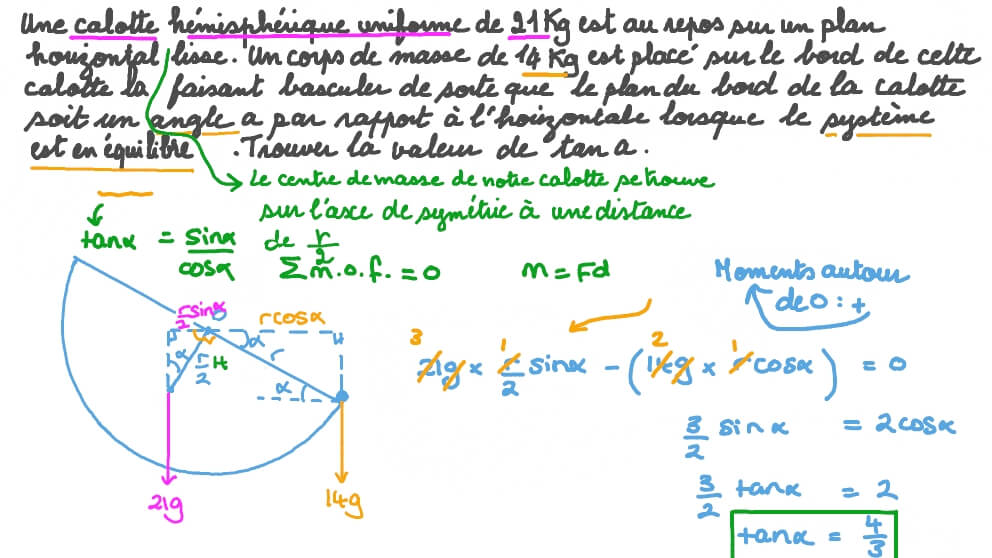 Une calotte hémisphérique uniforme de 21Kg est au repos sur un plan
horizontal lisse. Un corps de masse de 14 Kg est placé sur le bord de cette
calotte la faisant basculer de sorte que le plan du bord de la calotte
soit un angle a par rapport à l'horizontale lorsque le système
est en équilibre. Trouver la valeur de tan a.
Le centre de masse de notre calotte se trouve
sur l'axe de symétrie à une distance
de r/2
tanα = sinα/cosα
Σ m.o.f. = 0
M = Fd
Moments autour
de O : +
r/2 sinα
rcosα
α
r
α
r/2
H
α
21g
14g
3 1 2 1
21g × r/2 sinα - (14g × r cosα) = 0
3/2 sinα = 2cosα
3/2 tanα = 2
tanα = 4/3